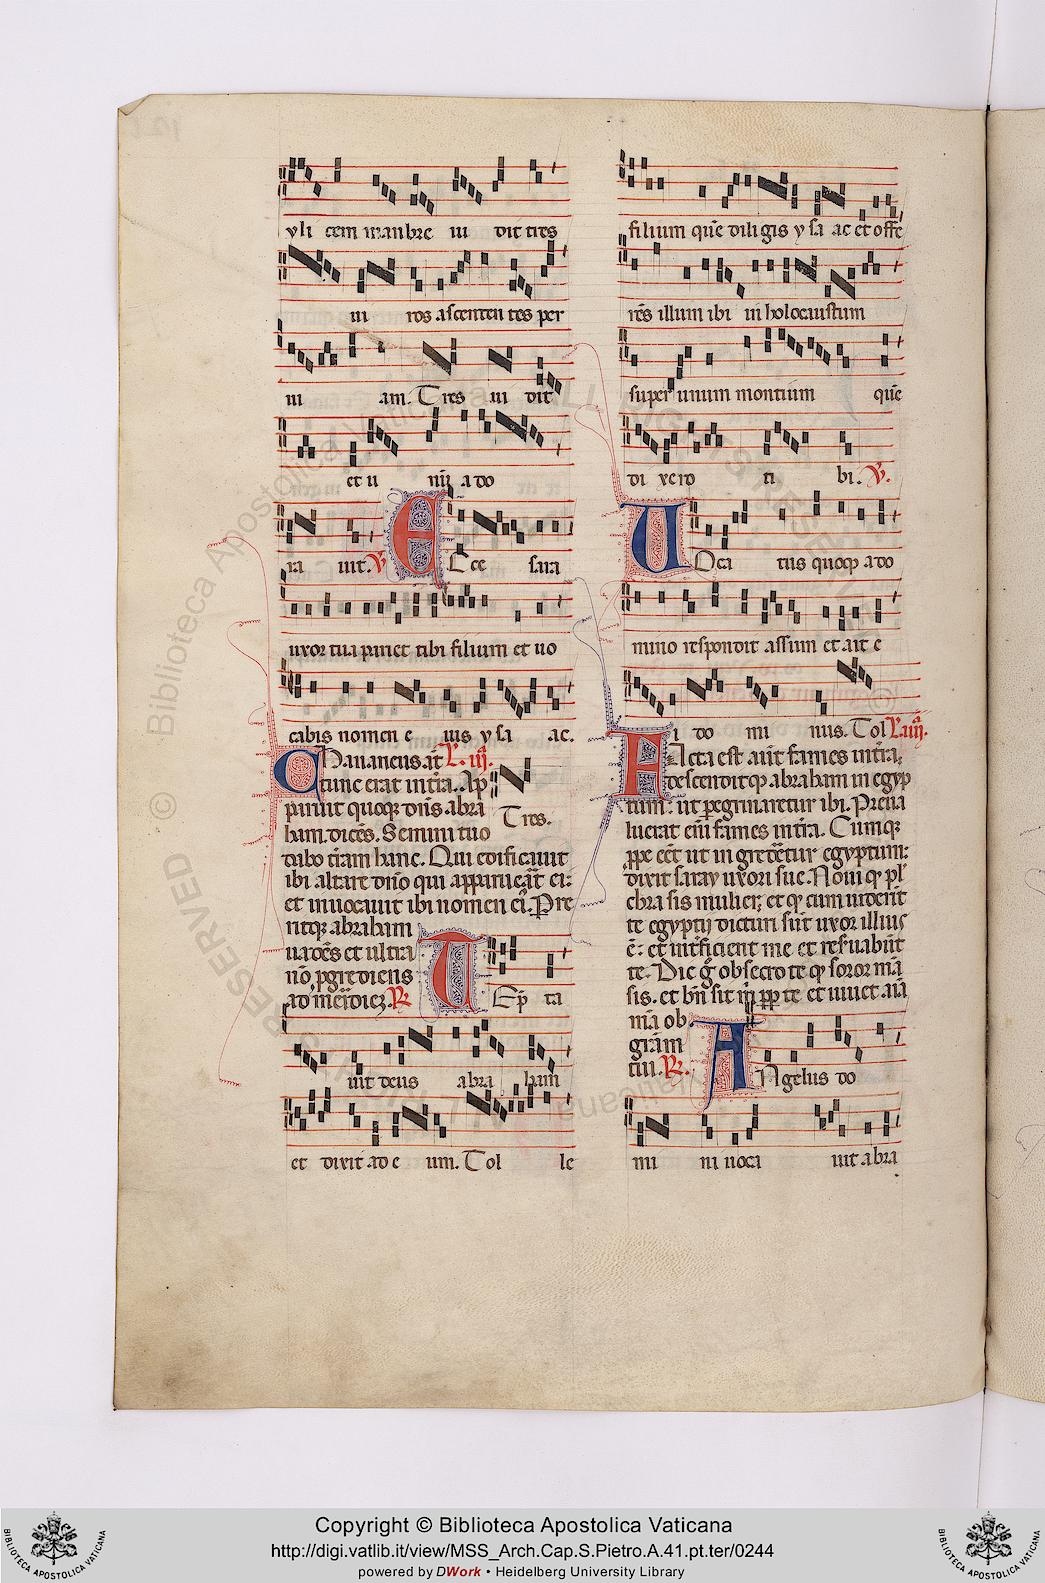 yli cem manbre ui dit tres
ui ros ascenten tes per
ui am. Tres ui dit
et u nũ ado
ra uit. V Ecce sara
uxor tua pariet tibi filium et uo
cabis nomen e ius ysa ac.
Hananeus aũt L. iij.
tunc erat in tr̃a. Ap
paruit quoque dñs abra Tres.
ham dicẽs. Semini tuo
dabo t̃ram hanc. Qui edificauit
ibi altare dño qui apparuerat ei:
et inuocauit ibi nomen ei. Pre
ritque abraham
uadẽs et ultra
nõ ꝓgrediens
ad meridiẽ. R Tẽp ta
uit deus abra ham
et dixit ad e um. Tol le
filium quẽ diligis ysa ac et offe
rẽs illum ibi in holocaustum
super unum montium quẽ
di xero ti bi. V.
Uoca tus quoqꝫ ado
mino respondit assum et ait e
i do mi nus. Tol L. iiij.
Facta est aũt fames in tr̃a,
descenditqꝫ abraham in egyp
tum: ut peregrinaretur ibi. Preua
luerat eni fames in tr̃a. Cumqꝫ
ꝓpe eẽt ut in grederetur egyptum:
dixit saray uxori sue. Noui qꝫ pul
chra sis mulier; et qꝫ cum uiderint
te egyptij dicturi sũt uxor illius
ẽ: et int̃ficient me et reseruabũt
te. Dic g̃ obsecro te qꝫ soror mea
sis. et bñ sit m̃ ꝓpter te et uiuet aĩa
mã ob
gr̃am
tui. R. Angelus do
mi ni uoca uit abra
Copyright © Biblioteca Apostolica Vaticana
http://digi.vatlib.it/view/MSS_Arch.Cap.S.Pietro.A.41.pt.ter/0244
powered by DWork • Heidelberg University Library